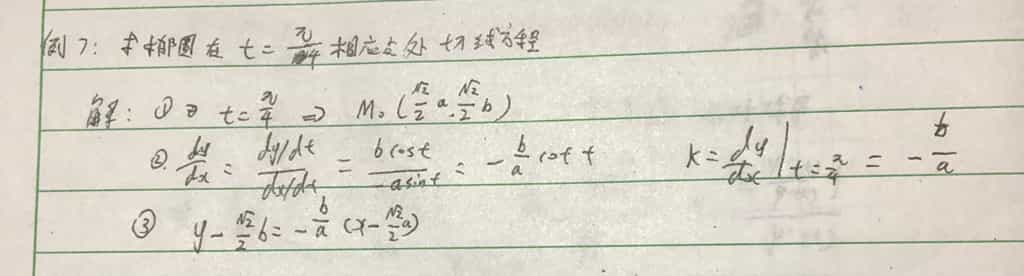 例7: 求椭圆在 t = π/4 相应点处切线方程
解: ① t = π/4 ⇒ M₀ (√2/2 a, √2/2 b)
② dy/dx = (dy/dt)/(dx/dt) = (b cost)/(-a sint) = - b/a cot t K = dy/dx |t=π/4 = - b/a
③ y - √2/2 b = - b/a (x - √2/2 a)